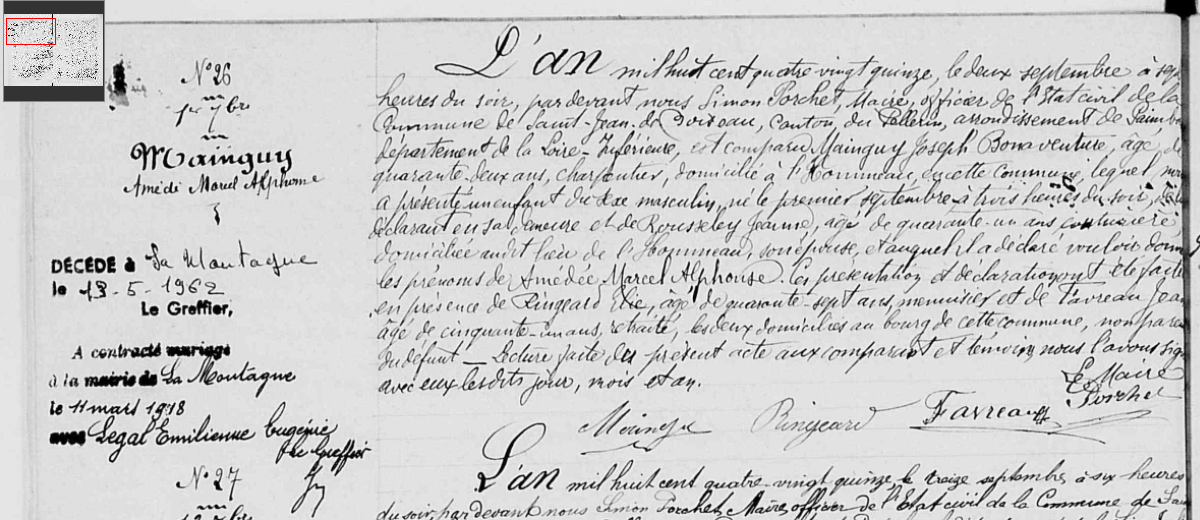 N° 26
1er 7bre
Mainguy
Amédé Marcel Alphonse
DÉCÉDÉ à La Montagne
le 13-5-1962
Le Greffier,
A contracté mariage
à la mairie de La Montagne
le 11 mars 1918
avec Legal Emilienne Eugénie
Le Greffier
L'an mil huit cent quatre-vingt quinze, le deux septembre à sept
heures du soir, par devant nous Simon Porchet, Maire, officier de l'Etat civil de la
Commune de Saint-Jean-de Boiseau, Canton du Pellerin, arrondissement de
département de la Loire-Inférieure, est comparu Mainguy Joseph Bonaventure, âgé de
quarante-deux ans, charpentier, domicilié à l'Hommeau, en cette Commune, lequel nous
a présenté un enfant du sexe masculin, né le premier septembre à trois heures du soir, de lui
déclarant en sa demeure et de Rousseley Jeanne, âgé de quarante-un ans couturière
domiciliée audit lieu de l'Hommeau, son épouse, et auquel il a déclaré vouloir donn
les prénoms de Amédée Marcel Alphonse. Ces présentation et déclaration ont été faite
en présence de Ringeard Elie, âgé de quarante-sept ans, menuisier et de Favreau Jean
âgé de cinquante-un ans, retraité, les deux domiciliés au bourg de cette commune, non paren
du défunt — Lecture faite du présent acte aux comparant et témoins, nous l'avons sign
avec eux lesdits jour, mois et an.
Le Maire
Porchet
Mainguy Ringeard Favreau
N° 27
L'an mil huit cent quatre-vingt quinze, le treize septembre, à six heures
du soir, par devant nous Simon Porchet, Maire, officier de l'Etat civil de la Commune de